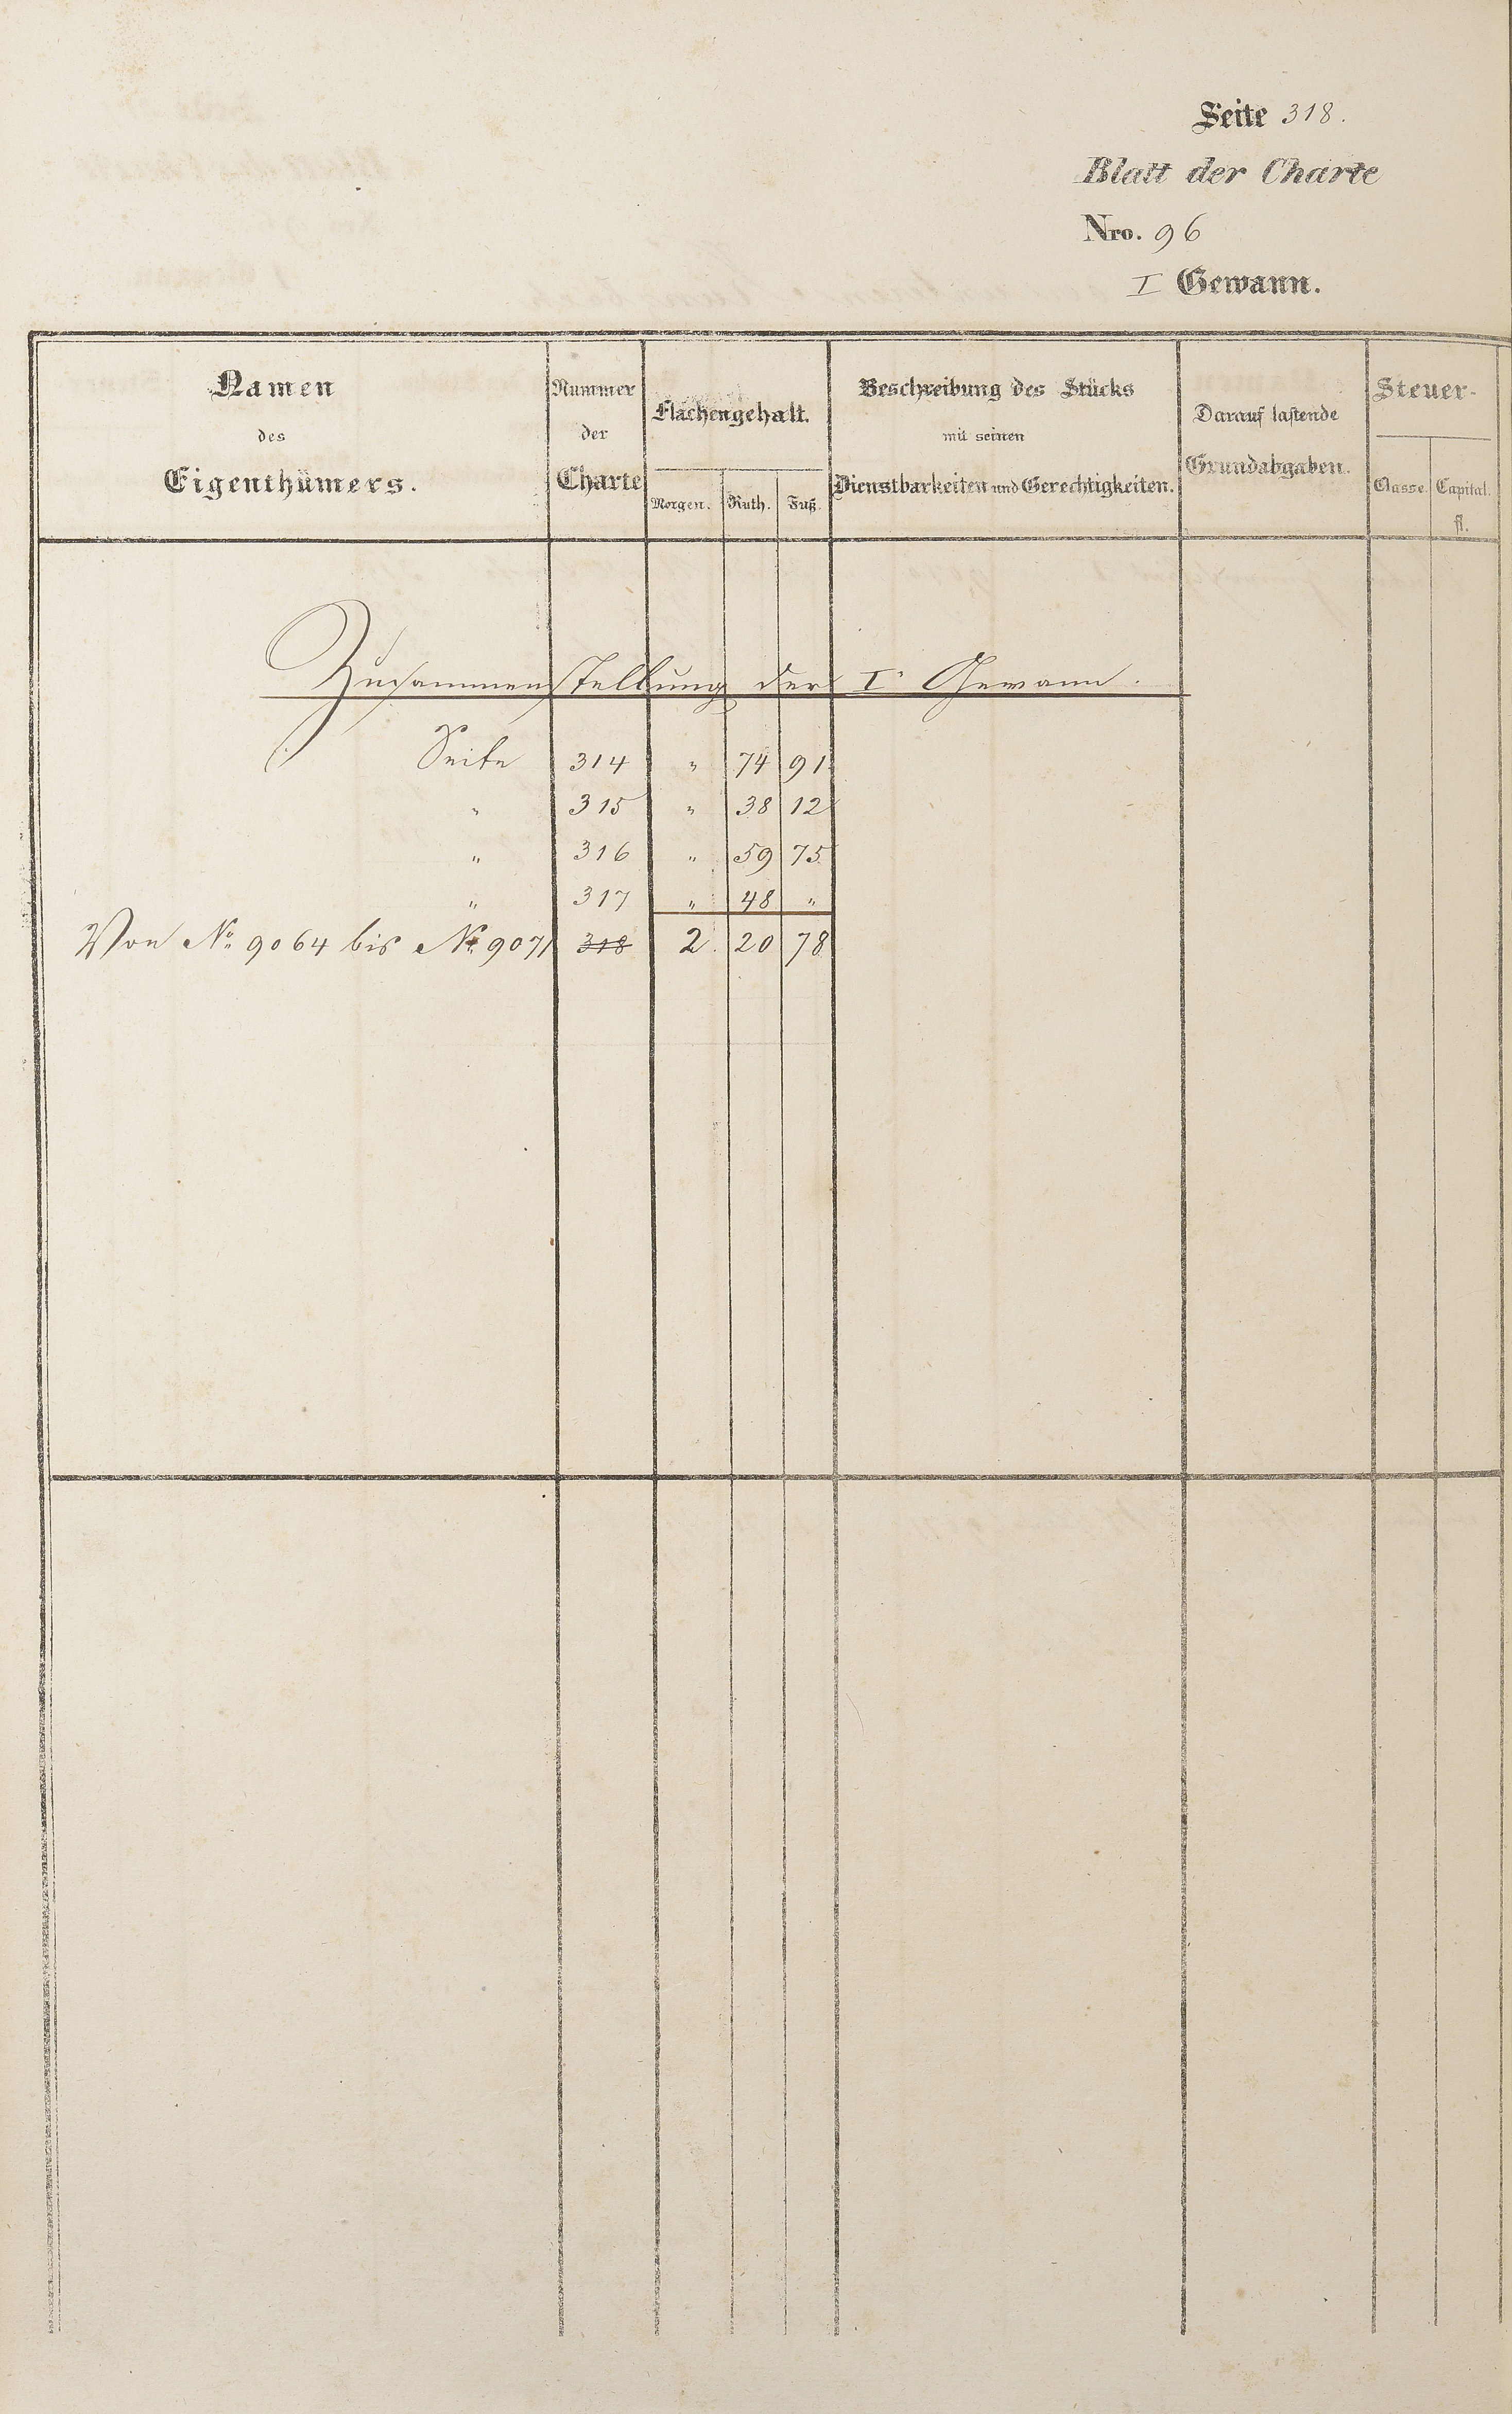 Seite 318.
Blatt der Charte
Nro. 96
I Gewann.
Namen des Eigenthümers.
Nummer der Charte
Flächengehalt.
Morgen. Ruth. Fuß.
Beschreibung des Stücks mit seinen Dienstbarkeiten und Gerechtigkeiten.
Darauf lastende Grundabgaben.
Steuer-
Classe. Capital. fl.
Zusammenstellung der I. Gewann.
Seite 314 " 74 91
" 315 " 38 12
" 316 " 59 75
" 317 " 48 "
Von No. 9064 bis No. 9071 318 2. 20 78